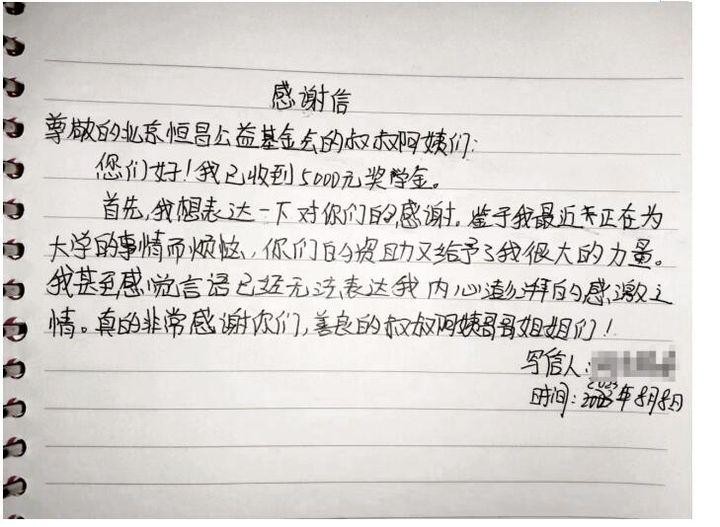 感谢信
尊敬的北京恒昌公益基金会的叔叔阿姨们:
您们好!我已收到5000元奖学金。
首先,我想表达一下对你们的感谢。鉴于我最近正在为
大学的事情而烦恼,你们的资助又给予了我很大的力量。
我甚至感觉言语已经无法表达我内心澎湃的感激之
情。真的非常感谢你们,善良的叔叔阿姨哥哥姐姐们!
写信人:
时间:2023年8月8日